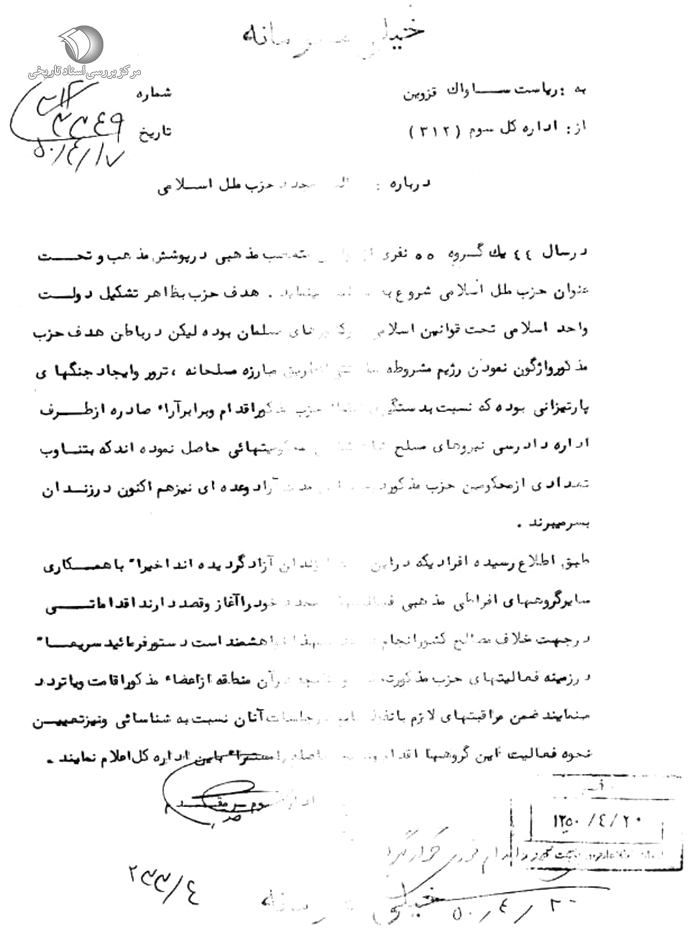 خیلی محرمانه
مرکز بررسی اسناد تاریخی
به : ریاست ساواك قزوین
شماره
از : اداره کل سوم (۳۱۲)
تاریخ
۵۰/۴/۱۷
درباره : مجدد حزب ملل اسلامی
در سال ٤٤ یك گروه ٥٥ نفری از متعصب مذهبی در پوشش مذهب و تحت
عنوان حزب ملل اسلامی شروع به مینماید . هدف حزب بظاهر تشکیل دولت
واحد اسلامی تحت قوانین اسلامی کشورهای مسلمان بوده لیکن در باطن هدف حزب
مذکور واژگون نمودن رژیم مشروطه از طریق مبارزه مسلحانه ، ترور وایجاد جنگهای
پارتیزانی بوده که نسبت بدستگیری اعضاء حزب مذکور اقدام و برابر آراء صادره از طرف
اداره دادرسی نیروهای مسلح محکومیتهائی حاصل نموده اند که بتناوب
تعدادی از محکومین حزب مذکور مدت آزاد وعده ای نیز هم اکنون در زندان
بسر میبرند .
طبق اطلاع رسیده افرادیکه در این از زندان آزاد گردیده اند اخیرا" با همکاری
سایر گروههای افراطی مذهبی مجدد خود را آغاز وقصد دارند اقداماتی
در جهت خلاف مصالح کشور انجام خواهشمند است دستور فرمائید سریعا"
در زمینه فعالیتهای حزب مذکور در آن منطقه از اعضاء مذکور اقامت ویا تردد
مینمایند ضمن مراقبتهای لازم با نفوذ در جلسات آنان نسبت به شناسائی ونیز تعیین
نحوه فعالیت این گروهها اقدام و باین اداره کل اعلام نمایند .
۱۳۵۰/٤/۲۰
۲۳۳/٤
خیلی محرمانه
۵۰/٤/۲۰